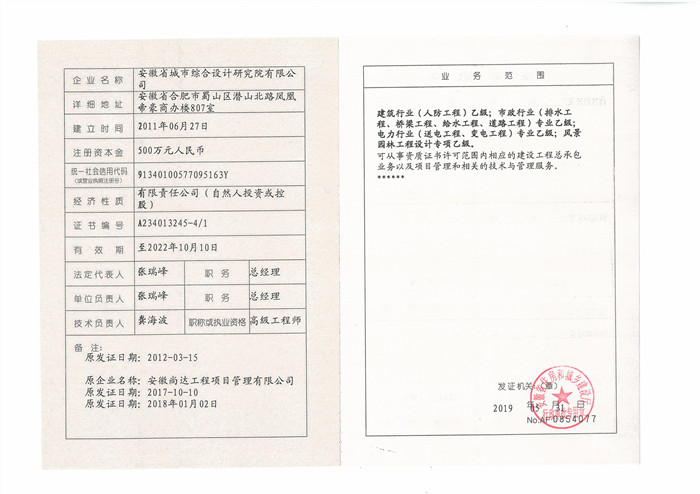 企业名称 安徽省城市综合设计研究院有限公司
详细地址 安徽省合肥市蜀山区潜山北路凤凰帝豪商办楼807室
建立时间 2011年06月27日
注册资本金 500万元人民币
统一社会信用代码 913401005770951 63Y
(或营业执照注册号)
经济性质 有限责任公司(自然人投资或控股)
证书编号 A234013245-4/1
有效期 至2022年10月10日
法定代表人 张瑞峰 职务 总经理
单位负责人 张瑞峰 职务 总经理
技术负责人 龚海波 职称或执业资格 高级工程师
备注:
原发证日期: 2012-03-15
原企业名称: 安徽尚达工程项目管理有限公司
原发证日期: 2017-10-10
原发证日期: 2018年01月02日
业务范围
建筑行业(人防工程)乙级; 市政行业(排水工
程、桥梁工程、给水工程、道路工程)专业乙级;
电力行业(送电工程、变电工程)专业乙级; 风景
园林工程设计专项乙级。
可从事资质证书许可范围内相应的建设工程总承包
业务以及项目管理和相关的技术与管理服务。
******
发证机关:(章)
2019 年 05 月 31 日
No.AF 0854077